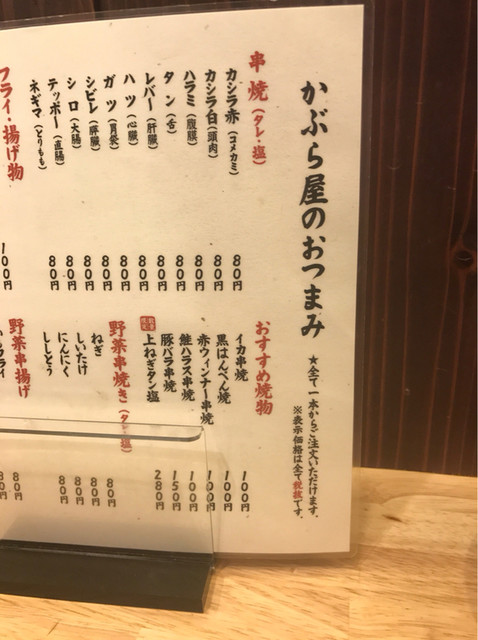 かぶら屋のおつまみ
★全て一本からご注文いただけます。
※表示価格は全て税抜です。
串焼(タレ・塩)
カシラ赤(コメカミ) 80円
カシラ白(頭肉) 80円
ハラミ(腹膜) 80円
タン(舌) 80円
レバー(肝臓) 80円
ハツ(心臓) 80円
ガツ(胃袋) 80円
シビレ(膵臓) 80円
シロ(大腸) 80円
テッポー(直腸) 80円
ネギマ(とりもも)
フライ・揚げ物
100円
おすすめ焼物
イカ串焼 100円
黒はんぺん焼 100円
赤ウィンナー串焼 100円
鮭ハラス串焼 100円
豚バラ串焼 150円
上ねぎタン塩 280円
野菜串焼き(タレ・塩)
ねぎ 80円
しいたけ 80円
にんにく 80円
ししとう 80円
野菜串揚げ
80円
80円